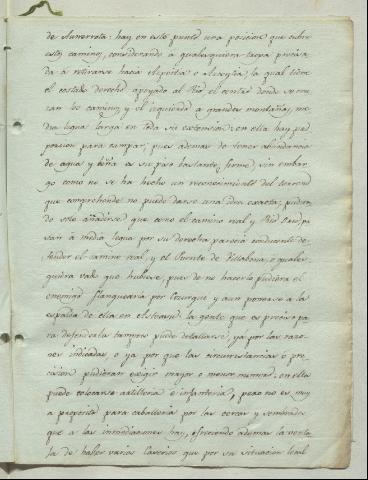 de Aunerreta: hay en este punto una posicion que cubre
estos caminos, considerando à qualesquiera tropa precisa
da à retirarse hacia Azpeitia o Azcoytia, la qual tiene
el costado derecho apoyado al Rio el centro donde se cru
zan los caminos y el izquierdo a grandes montañas, me
dia legua larga en toda su extension: en ella hay pro
porcion para campar, pues ademas de tener abundancia
de agua y leña es su piso bastante firme; sin embar
go como no se ha hecho un reconocimiento del terreno
que comprehende no puede darse una idea exacta; pudien
do solo añadirse que como el camino real y Rio Oria, pa
san à media legua por su derecha parecia conducente de
fender el camino real, y el Puente de Villabona, o quales
quiera vado que hubiese, pues de no hacerlo pudiera el
enemigo flanquearla por Cizurque y aun ponerse a la
espalda de ella en el la gente que es preciso pa
ra defenderla tampoco puede detallarse, ya por las razo
nes indicadas, o ya por que las circunstancias o pre
cision pudieran exigir mayor o menor numero: en ella
puede colocarse artilleria è infanteria, pero no es muy
a proposito para caballeria por las cercas y sembrados
que a las inmediaciones hay, ofreciendo ademas la venta
ja de haber varios caserios que por su situacion local